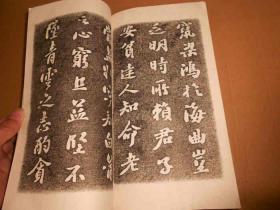 竄梁鴻於海曲豈
乏明時所賴君子
安貧達人知命老
當益壯白首
之心窮且益堅不
墜青雲之志酌貪